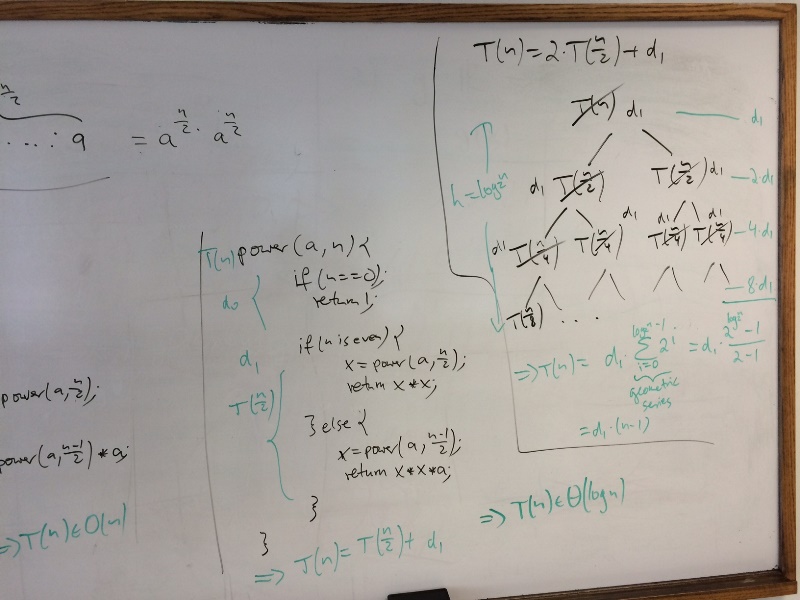 n/2
....· a = a^(n/2) · a^(n/2)
power(a, n/2);
power(a, (n-1)/2) * a;
=> T(n) ∈ O(n)
T(n) power(a, n) {
if (n==0);
d₀
return 1;
if (n is even) {
d₁
x = power(a, n/2);
return x*x;
T(n/2)
} else {
x = power(a, (n-1)/2);
return x*x*a;
}
}
=> T(n) = T(n/2) + d₁
=> T(n) ∈ Θ(log n)
T(n) = 2·T(n/2) + d₁
T(n) d₁ — d₁
h = log n
d₁ T(n/2) T(n/2) d₁ — 2·d₁
d₁ T(n/4) T(n/4) d₁ d₁ T(n/4) d₁ T(n/4) — 4·d₁
— 8·d₁
T(n/8) . . .
=> T(n) = d₁ · Σ_{i=0}^{log n - 1} 2^i = d₁ · (2^(log n) - 1)/(2-1)
geometric
series
= d₁·(n-1)